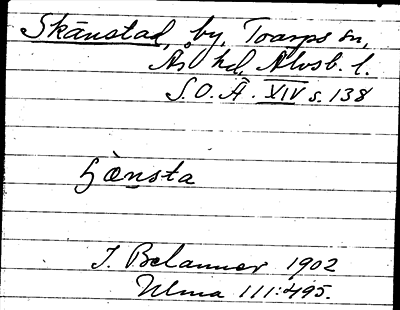 Skånstad, by, Toarps sn,
Ås hd, Älvsb. l.
S.O.Ä. XIV s. 138
J. 1902
Ulma 111:495.